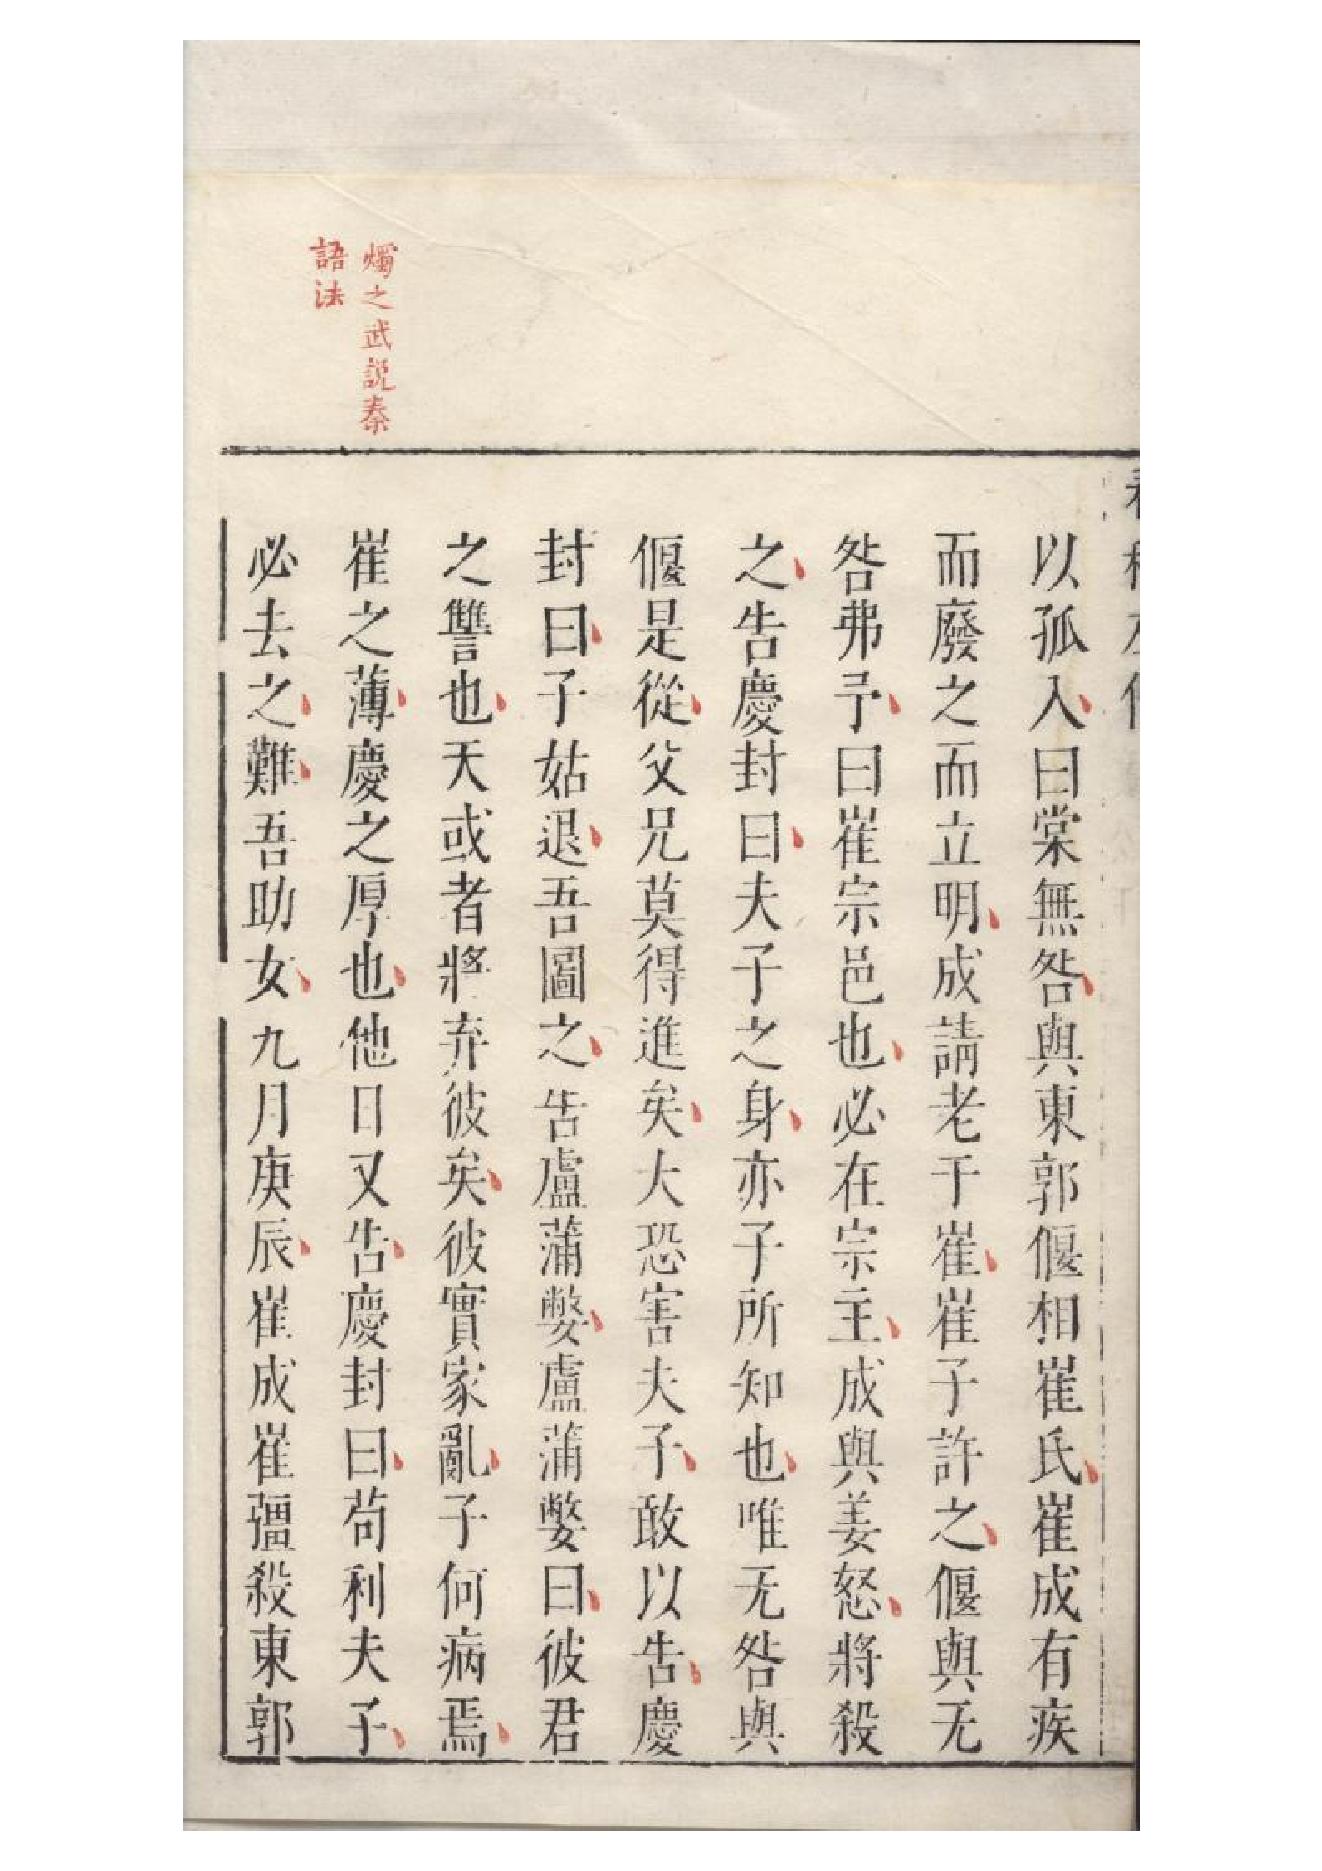 燭之武説秦
語法
以孤入曰棠無咎與東郭偃相崔氏崔成有疾
而廢之而立明成請老于崔崔子許之偃與无
咎弗予曰崔宗邑也必在宗主成與姜怒將殺
之告慶封曰夫子之身亦子所知也唯无咎與
偃是從父兄莫得進矣大恐害夫子敢以告慶
封曰子姑退吾圖之告盧蒲嫳盧蒲嫳曰彼君
之讐也天或者將弃彼矣彼實家亂子何病焉
崔之薄慶之厚也他日又告慶封曰苟利夫子
必去之難吾助女九月庚辰崔成崔彊殺東郭